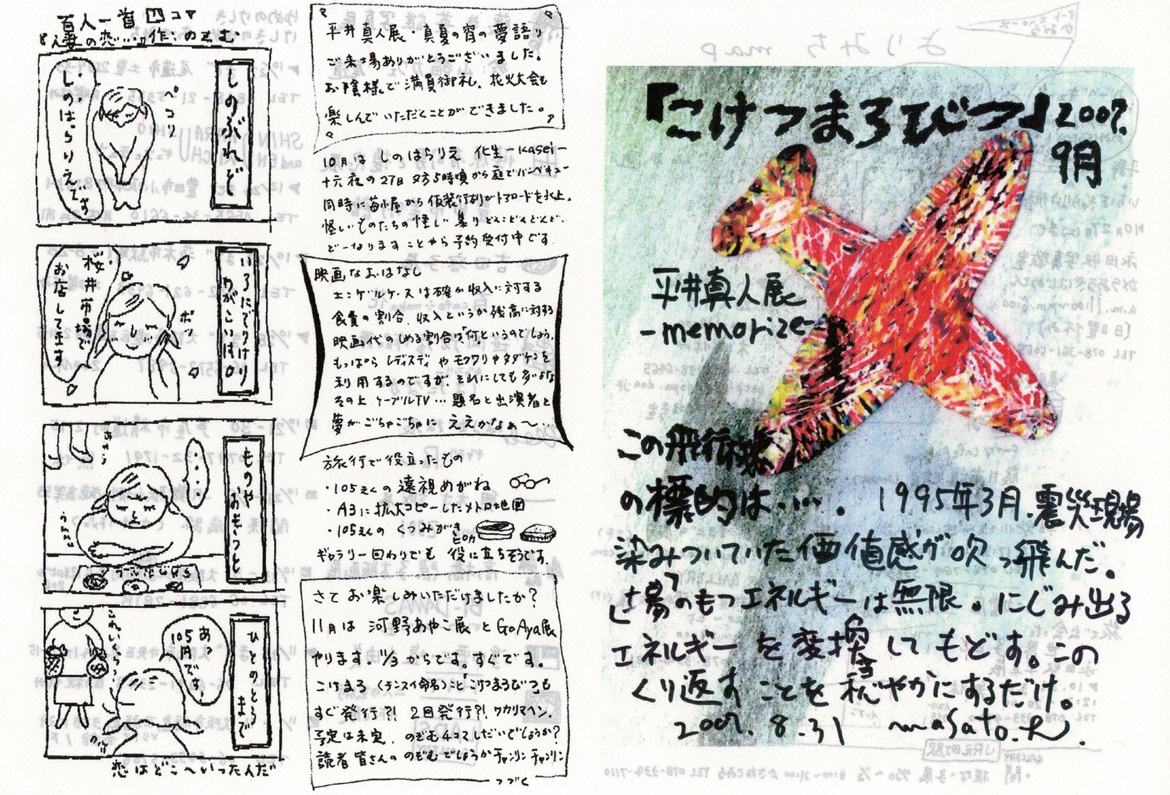 百人一首四コマ
『人妻の恋…』作：のぞむ
しのぶれど
ペコリ
しのはらりえです
いろにでりけり
わがこいは
ポッ
桜井市場で
お店してます
ものや
おもうと
・・・・・
ひとのとう
まで
あ
105円です
恋はどこへいったんだ
平井真人展・真夏の宵の夢語り
ご来場ありがとうございました。
お陰様で満員御礼。花火大会も
楽しんでいただくことができました。
10月は しのはらりえ 化生 -kasei-
十六夜の27日夕方5時頃から庭でバーベキュー
同時に苗小屋から仮装行列がトアロードを北上。
怪しいものたちの怪しい集りどんどんどんど、
どーなりますことやら予約受付中です
映画なおはなし
エンゲルケースは確か収入に対する
食費の割合、収入というか残高に対する
映画代のしめる割合は何というのでしょう。
もっぱらレディスデイやモクワリやタダケンを
利用するのですが、それにしても多すぎな
その上ケーブルTV…題名と出演者と
夢がごちゃごちゃに ええがなぁ〜
旅行で役立ったもの
・105えんの遠視めがね
・A3に拡大コピーしたメトロ地図
・105えんの くつみがき
ギャラリー回わりでも 役に立ちそうです。
さてお楽しみいただけましたか？
11月は 河野あやこ展とGoAya展
やります。11/3からです。すぐです。
こけまろ（テンスイ命名）こと「こけつまろびつ」も
すぐ発行?! 2回発行?! ワカリマヘン。
予定は未定。のぞむ4コマしだいでしょうか？
読者皆さんののぞむでしょうかチャンリンチャンリン
つづく
『こけつまろびつ』2007.
9月
平井真人展
-memorize-
この飛行機
の標的は…… 。1995年3月.震災現場
染みついていた価値感が吹っ飛んだ。
場のもつエネルギーは無限。にじみ出る
エネルギーを変換してもどす。この
くり返すことを穏やかにするだけ。
2007. 8. 31 masato.h.